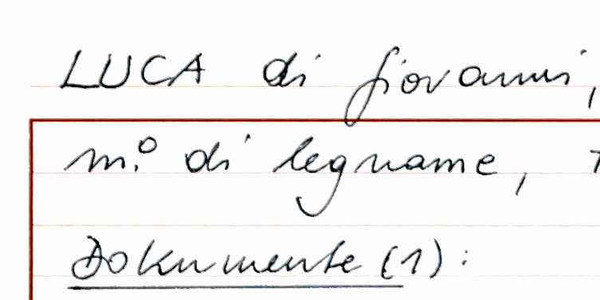 LUCA di Giovanni,
m.º di legname,
Dokumente (1):